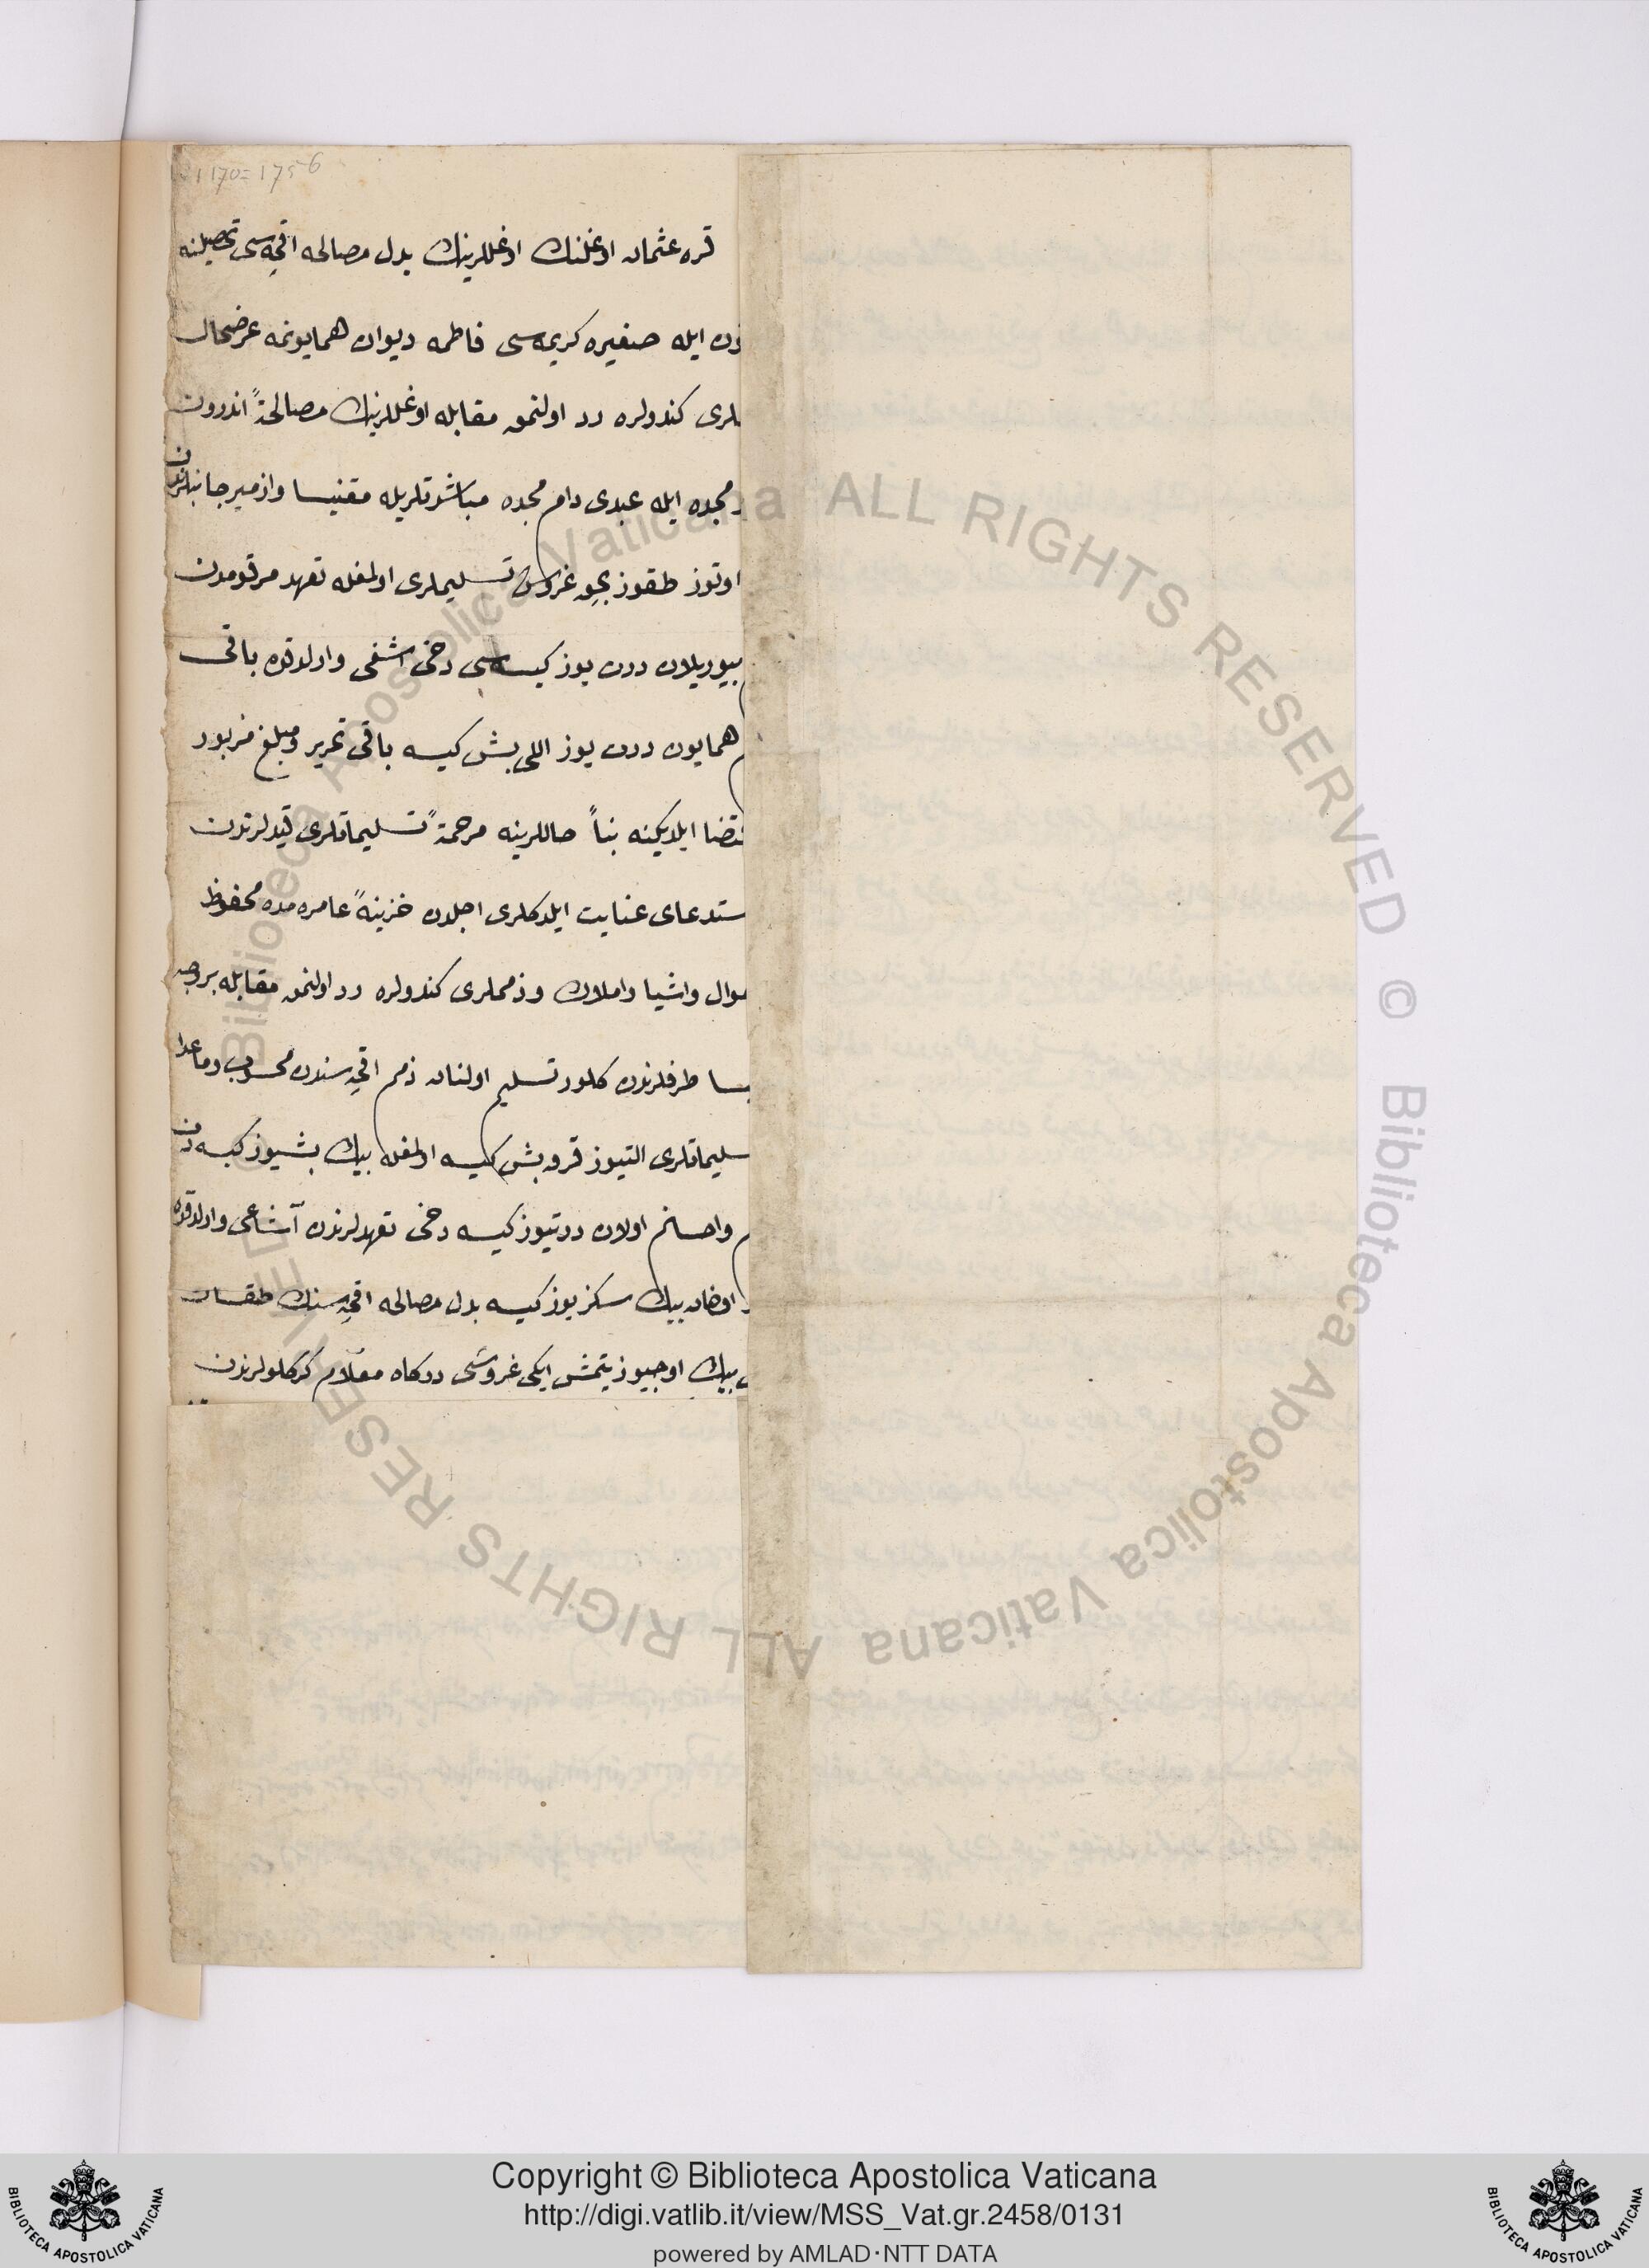 1170=1756
قره عثمان اوغلنك اوغللرينك بدل مصالحه اقچه سى تحصيلنه
ايله صغيره كريمه سى فاطمه ديوان همايونمه عرضحال
كندولره رد اولنمق مقابله اوغللرينك مصالحةً اندرون
مجده ايله عبدى دام مجده مباشرتلريله مغنيسا وازمير جانبلرندن
اوتوز طقوز بيك غروش تسليملرى اولمغله تعهد مرقومدن
بيوريلان درت يوز كيسه سى دخى اشغى وارلدقده باقى
همايون درت يوز اللى بش كيسه باقى تحرير ومبلغ مزبور
ايلديكنه بناً حاللرينه مرحمةً تسليماتلرى قيدلرندن
ستدعاى عنايت ايلدكلرى اجلدن خزينهٔ عامره مده محفوظ
موال واشيا واملاك وذمملرى كندولره رد اولنمق مقابله بر وجه
طرفلرندن كلور تسليم اولنان ذمم اقچه سندن محسوب وماعدا
سليماتلرى التيوز قرق بش كيسه اولمغله بيك بشيوز كيسه دن
واحسانم اولان درتيوز كيسه دخى تعهدلرندن آشاغى وارلدقده
بيك سكز يوز كيسه بدل مصالحه اقچه سنك طقسان
بيك اوچيوز يتمش ايكى غروشى دركاه معلام كركلولرندن
Biblioteca Apostolica Vaticana ALL RIGHTS RESERVED © Biblioteca Apostolica Vaticana ALL RIGHTS RESERVED ©
Copyright © Biblioteca Apostolica Vaticana
http://digi.vatlib.it/view/MSS_Vat.gr.2458/0131
powered by AMLAD·NTT DATA
BIBLIOTECA APOSTOLICA VATICANA
BIBLIOTECA APOSTOLICA VATICANA